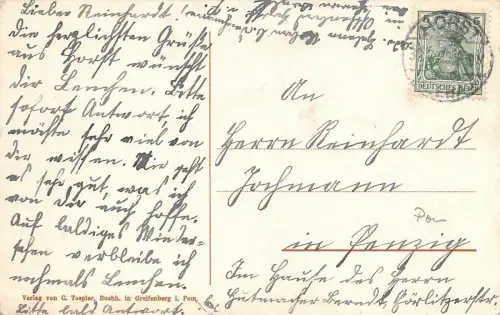 Lieber Reinhardt!
Die herzlichsten Grüße
aus Horst wünscht
Dir Lenchen. Bitte
sofort Antwort, ich
möchte sehr viel von
Dir wissen. Mir geht
es sehr gut, was ich
von Dir auch hoffe.
Auf baldiges Wieder-
sehen verbleibe ich
nochmals Lenchen.
Bitte bald Antwort.
Verlag von C. Toepler, Buchh. in Greifenberg i. Pom.
HORST
5 5
DEUTSCHES REICH
An
Herrn Reinhardt
Jochmann
in Penzig
Im Hause des Herrn
Hutmacher Berndt, Görlitzerstr.